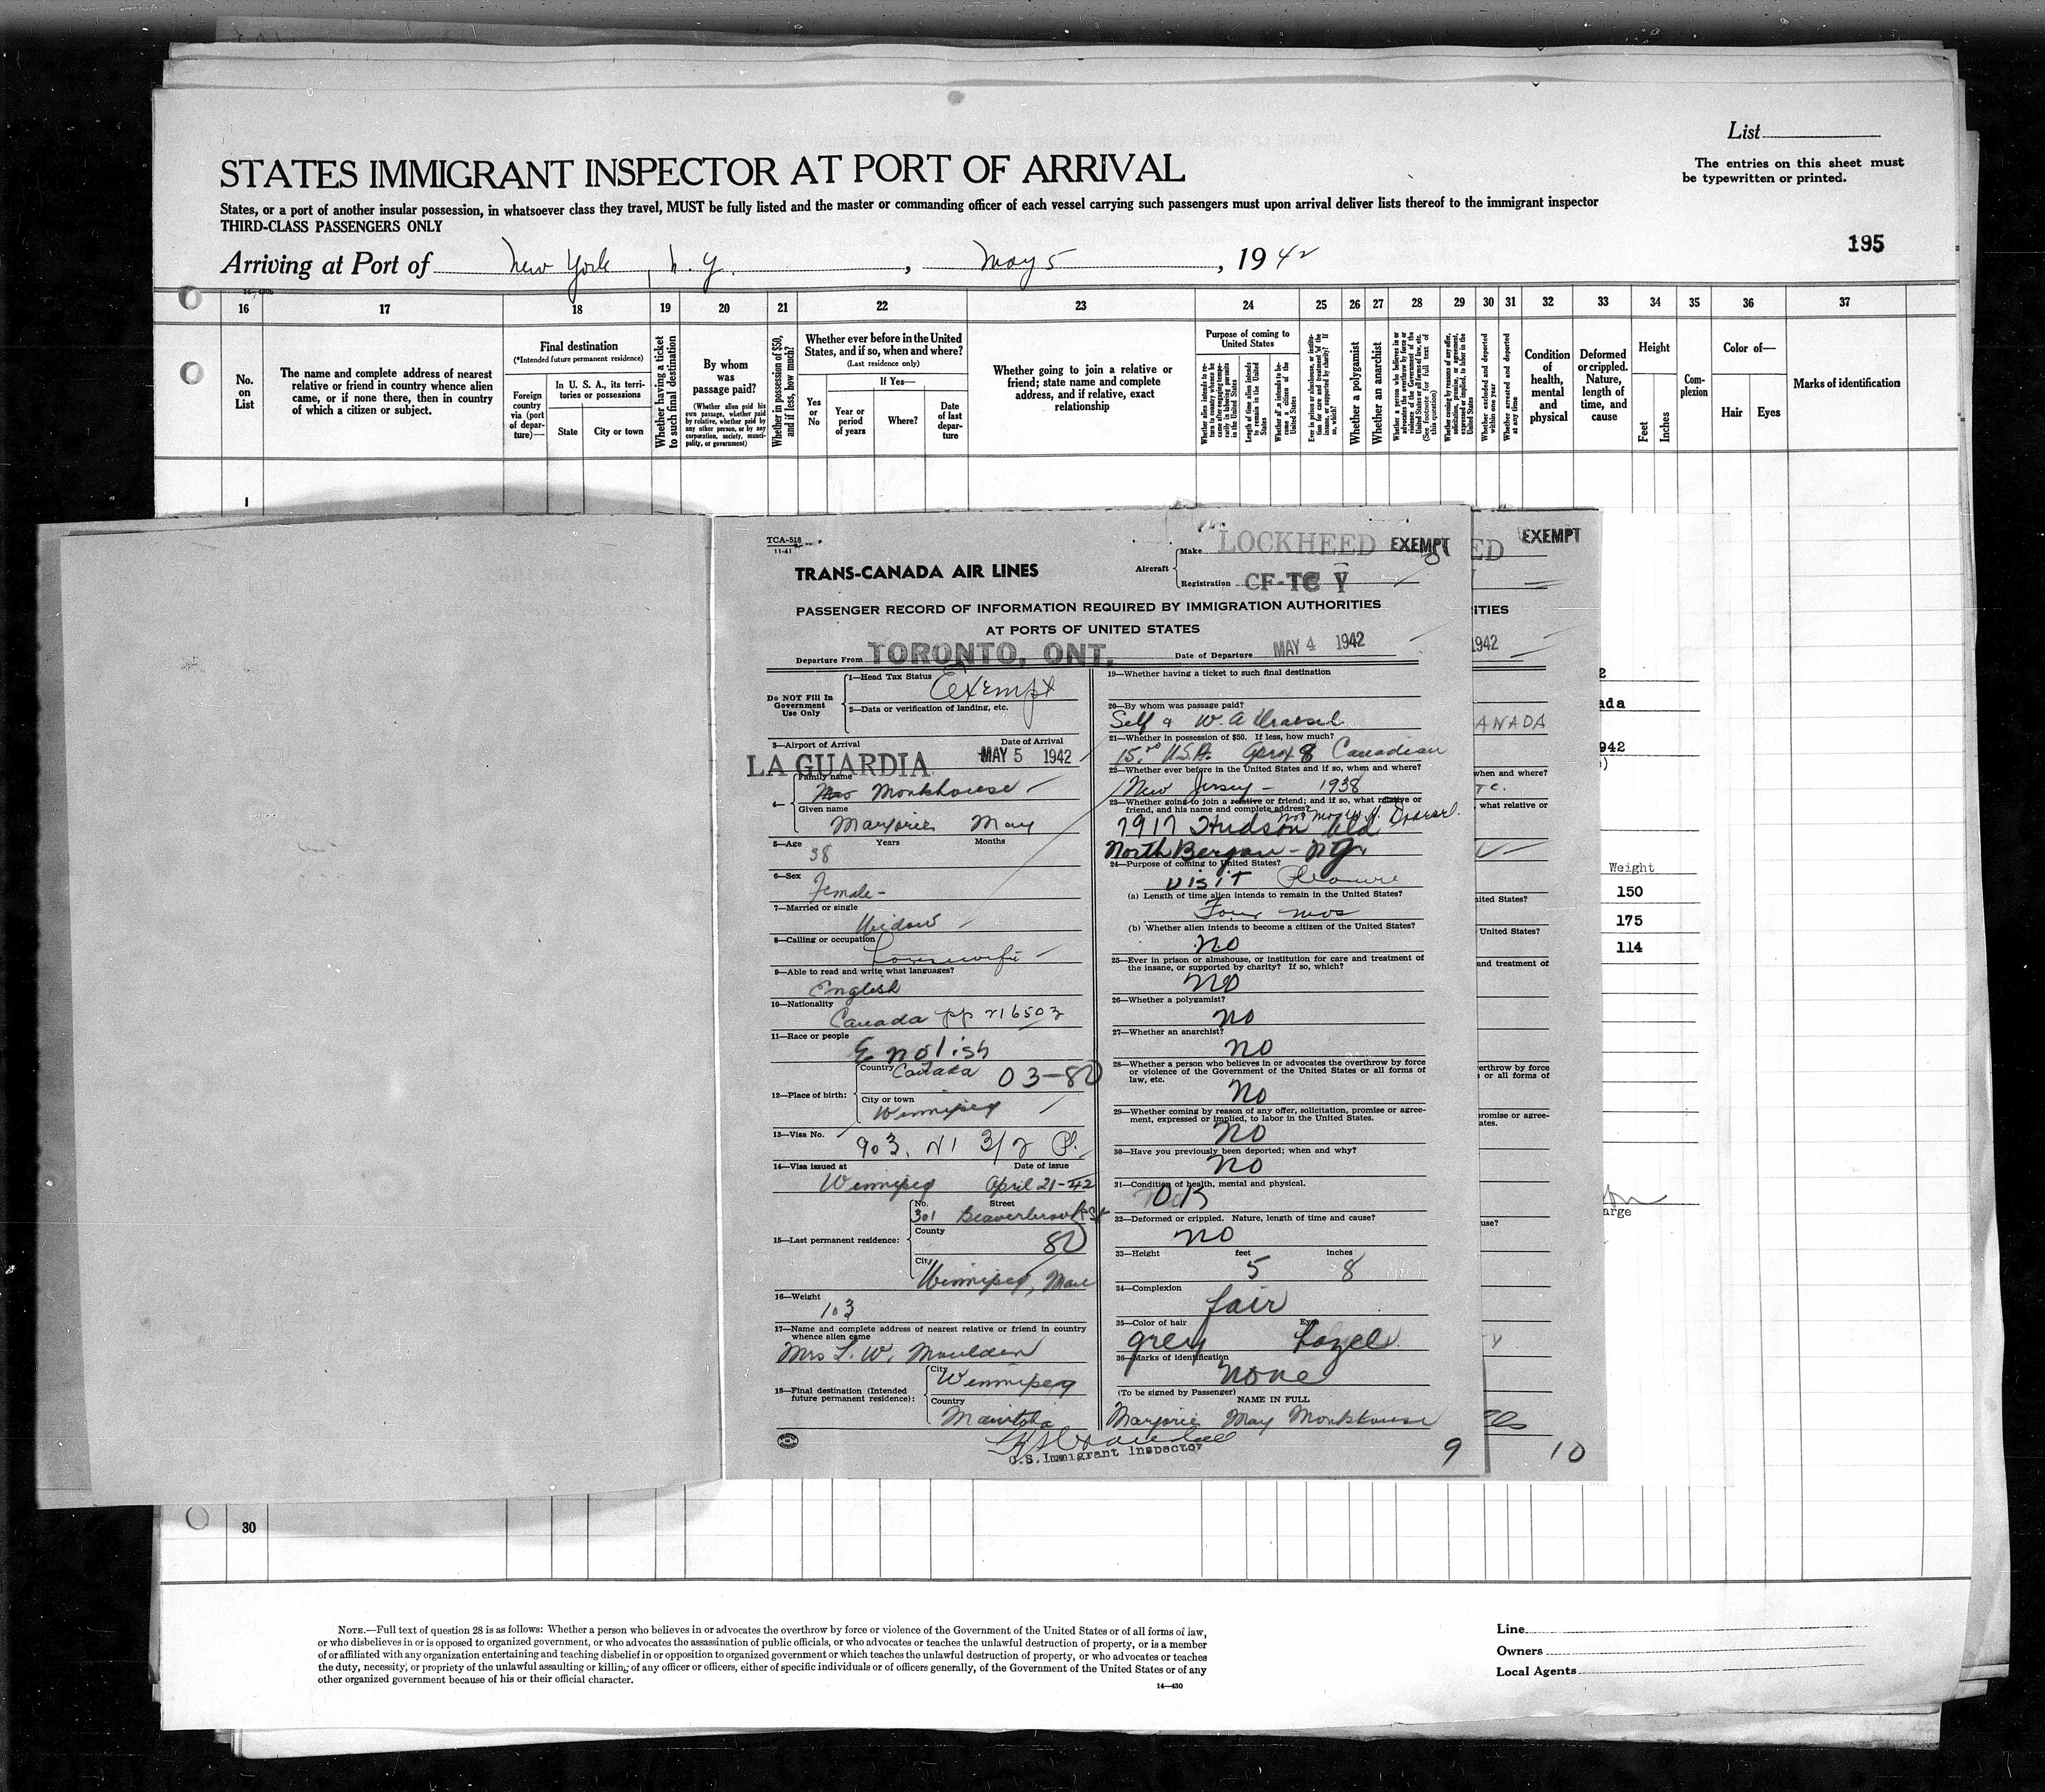 List
The entries on this sheet must
be typewritten or printed.
STATES IMMIGRANT INSPECTOR AT PORT OF ARRIVAL
States, or a port of another insular possession, in whatsoever class they travel, MUST be fully listed and the master or commanding officer of each vessel carrying such passengers must upon arrival deliver lists thereof to the immigrant inspector
THIRD-CLASS PASSENGERS ONLY
195
Arriving at Port of New York, N.Y., May 5, 1942
16 17 18 19 20 21 22 23 24 25 26 27 28 29 30 31 32 33 34 35 36 37
No. on List
The name and complete address of nearest relative or friend in country whence alien came, or if none there, then in country of which a citizen or subject.
Final destination
(*Intended future permanent residence)
Foreign country via (port of departure)—
In U. S. A., its territories or possessions
State
City or town
Whether having a ticket to such final destination
By whom was passage paid?
(Whether alien paid his own passage, whether paid by relative, whether paid by any other person, or by any corporation, society, municipality, or government)
Whether in possession of $50, and if less, how much?
Whether ever before in the United States, and if so, when and where?
(Last residence only)
Yes or No
If Yes—
Year or period of years
Where?
Date of last departure
Whether going to join a relative or friend; state name and complete address, and if relative, exact relationship
Purpose of coming to United States
Length of time alien intends to remain in the United States
Whether a polygamist
Whether an anarchist
Condition of health, mental and physical
Deformed or crippled. Nature, length of time, and cause
Height
Feet
Inches
Complexion
Color of—
Hair
Eyes
Marks of identification
1
TCA-518
11-41
TRANS-CANADA AIR LINES
Aircraft
Make LOCKHEED EXEMPT
Registration CF-TC Y
PASSENGER RECORD OF INFORMATION REQUIRED BY IMMIGRATION AUTHORITIES
AT PORTS OF UNITED STATES
Departure From TORONTO, ONT. Date of Departure MAY 4 1942
Do NOT Fill In
Government
Use Only
1—Head Tax Status Exempt
2—Data or verification of landing, etc.
3—Airport of Arrival Date of Arrival
LA GUARDIA MAY 5 1942
4—
Family name
Monkhouse
Given name
Marjorie May
5—Age Years Months
38
6—Sex
Female-
7—Married or single
Widow
8—Calling or occupation
Housewife
9—Able to read and write what languages?
English
10—Nationality
Canada pp 216503
11—Race or people
English
12—Place of birth:
Country Canada 03-80
City or town
Winnipeg
13—Visa No.
903. 3/2 P.
14—Visa issued at Date of issue
Winnipeg April 21-42
15—Last permanent residence:
No. Street
301 Beaverbrook St
County
80
City
Winnipeg, Man
16—Weight
103
17—Name and complete address of nearest relative or friend in country
whence alien came
Mrs L. W. Moulden
18—Final destination (Intended
future permanent residence):
City
Winnipeg
Country
Manitoba
19—Whether having a ticket to such final destination
20—By whom was passage paid?
Self & W. A
21—Whether in possession of $50. If less, how much?
15.00 U.S.A. 8 Canadian
22—Whether ever before in the United States and if so, when and where?
New Jersey - 1938
23—Whether going to join a relative or friend; and if so, what relative or
friend, and his name and complete address?
7917 Hudson Bld
North Bergen - N.J.
24—Purpose of coming to United States?
visit Pleasure
(a) Length of time alien intends to remain in the United States?
Four mos
(b) Whether alien intends to become a citizen of the United States?
no
25—Ever in prison or almshouse, or institution for care and treatment of
the insane, or supported by charity? If so, which?
no
26—Whether a polygamist?
no
27—Whether an anarchist?
no
28—Whether a person who believes in or advocates the overthrow by force
or violence of the Government of the United States or all forms of
law, etc.
no
29—Whether coming by reason of any offer, solicitation, promise or agree-
ment, expressed or implied, to labor in the United States.
no
30—Have you previously been deported; when and why?
no
31—Condition of health, mental and physical.
OK
32—Deformed or crippled. Nature, length of time and cause?
no
33—Height feet inches
5 8
34—Complexion
fair
35—Color of hair Eyes
grey hazel
36—Marks of identification
none
(To be signed by Passenger)
NAME IN FULL
Marjorie May Monkhouse
U.S. Immigrant Inspector
9
ED EXEMPT
ITIES
1942
ANADA
when and where?
what relative or
nited States?
United States?
and treatment of
erthrow by force
or all forms of
promise or agree-
ates.
use?
10
2
ada
942
Weight
150
175
114
arge
30
NOTE.—Full text of question 28 is as follows: Whether a person who believes in or advocates the overthrow by force or violence of the Government of the United States or of all forms of law,
or who disbelieves in or is opposed to organized government, or who advocates the assassination of public officials, or who advocates or teaches the unlawful destruction of property, or is a member
of or affiliated with any organization entertaining and teaching disbelief in or opposition to organized government or which teaches the unlawful destruction of property, or who advocates or teaches
the duty, necessity, or propriety of the unlawful assaulting or killing of any officer or officers, either of specific individuals or of officers generally, of the Government of the United States or of any
other organized government because of his or their official character.
14—430
Line
Owners
Local Agents